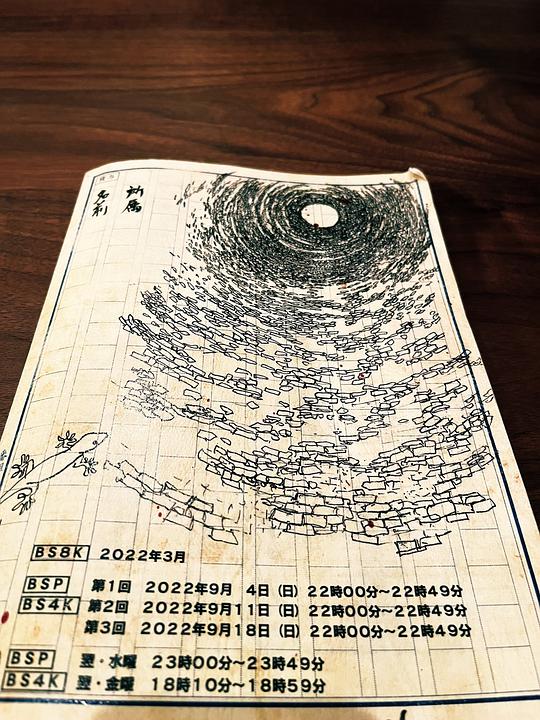 BS8K 2022年3月
BSP 第1回 2022年9月 4日(日)22時00分~22時49分
BS4K 第2回 2022年9月11日(日)22時00分~22時49分
第3回 2022年9月18日(日)22時00分~22時49分
BSP 翌・水曜 23時00分~23時49分
BS4K 翌・金曜 18時10分~18時59分